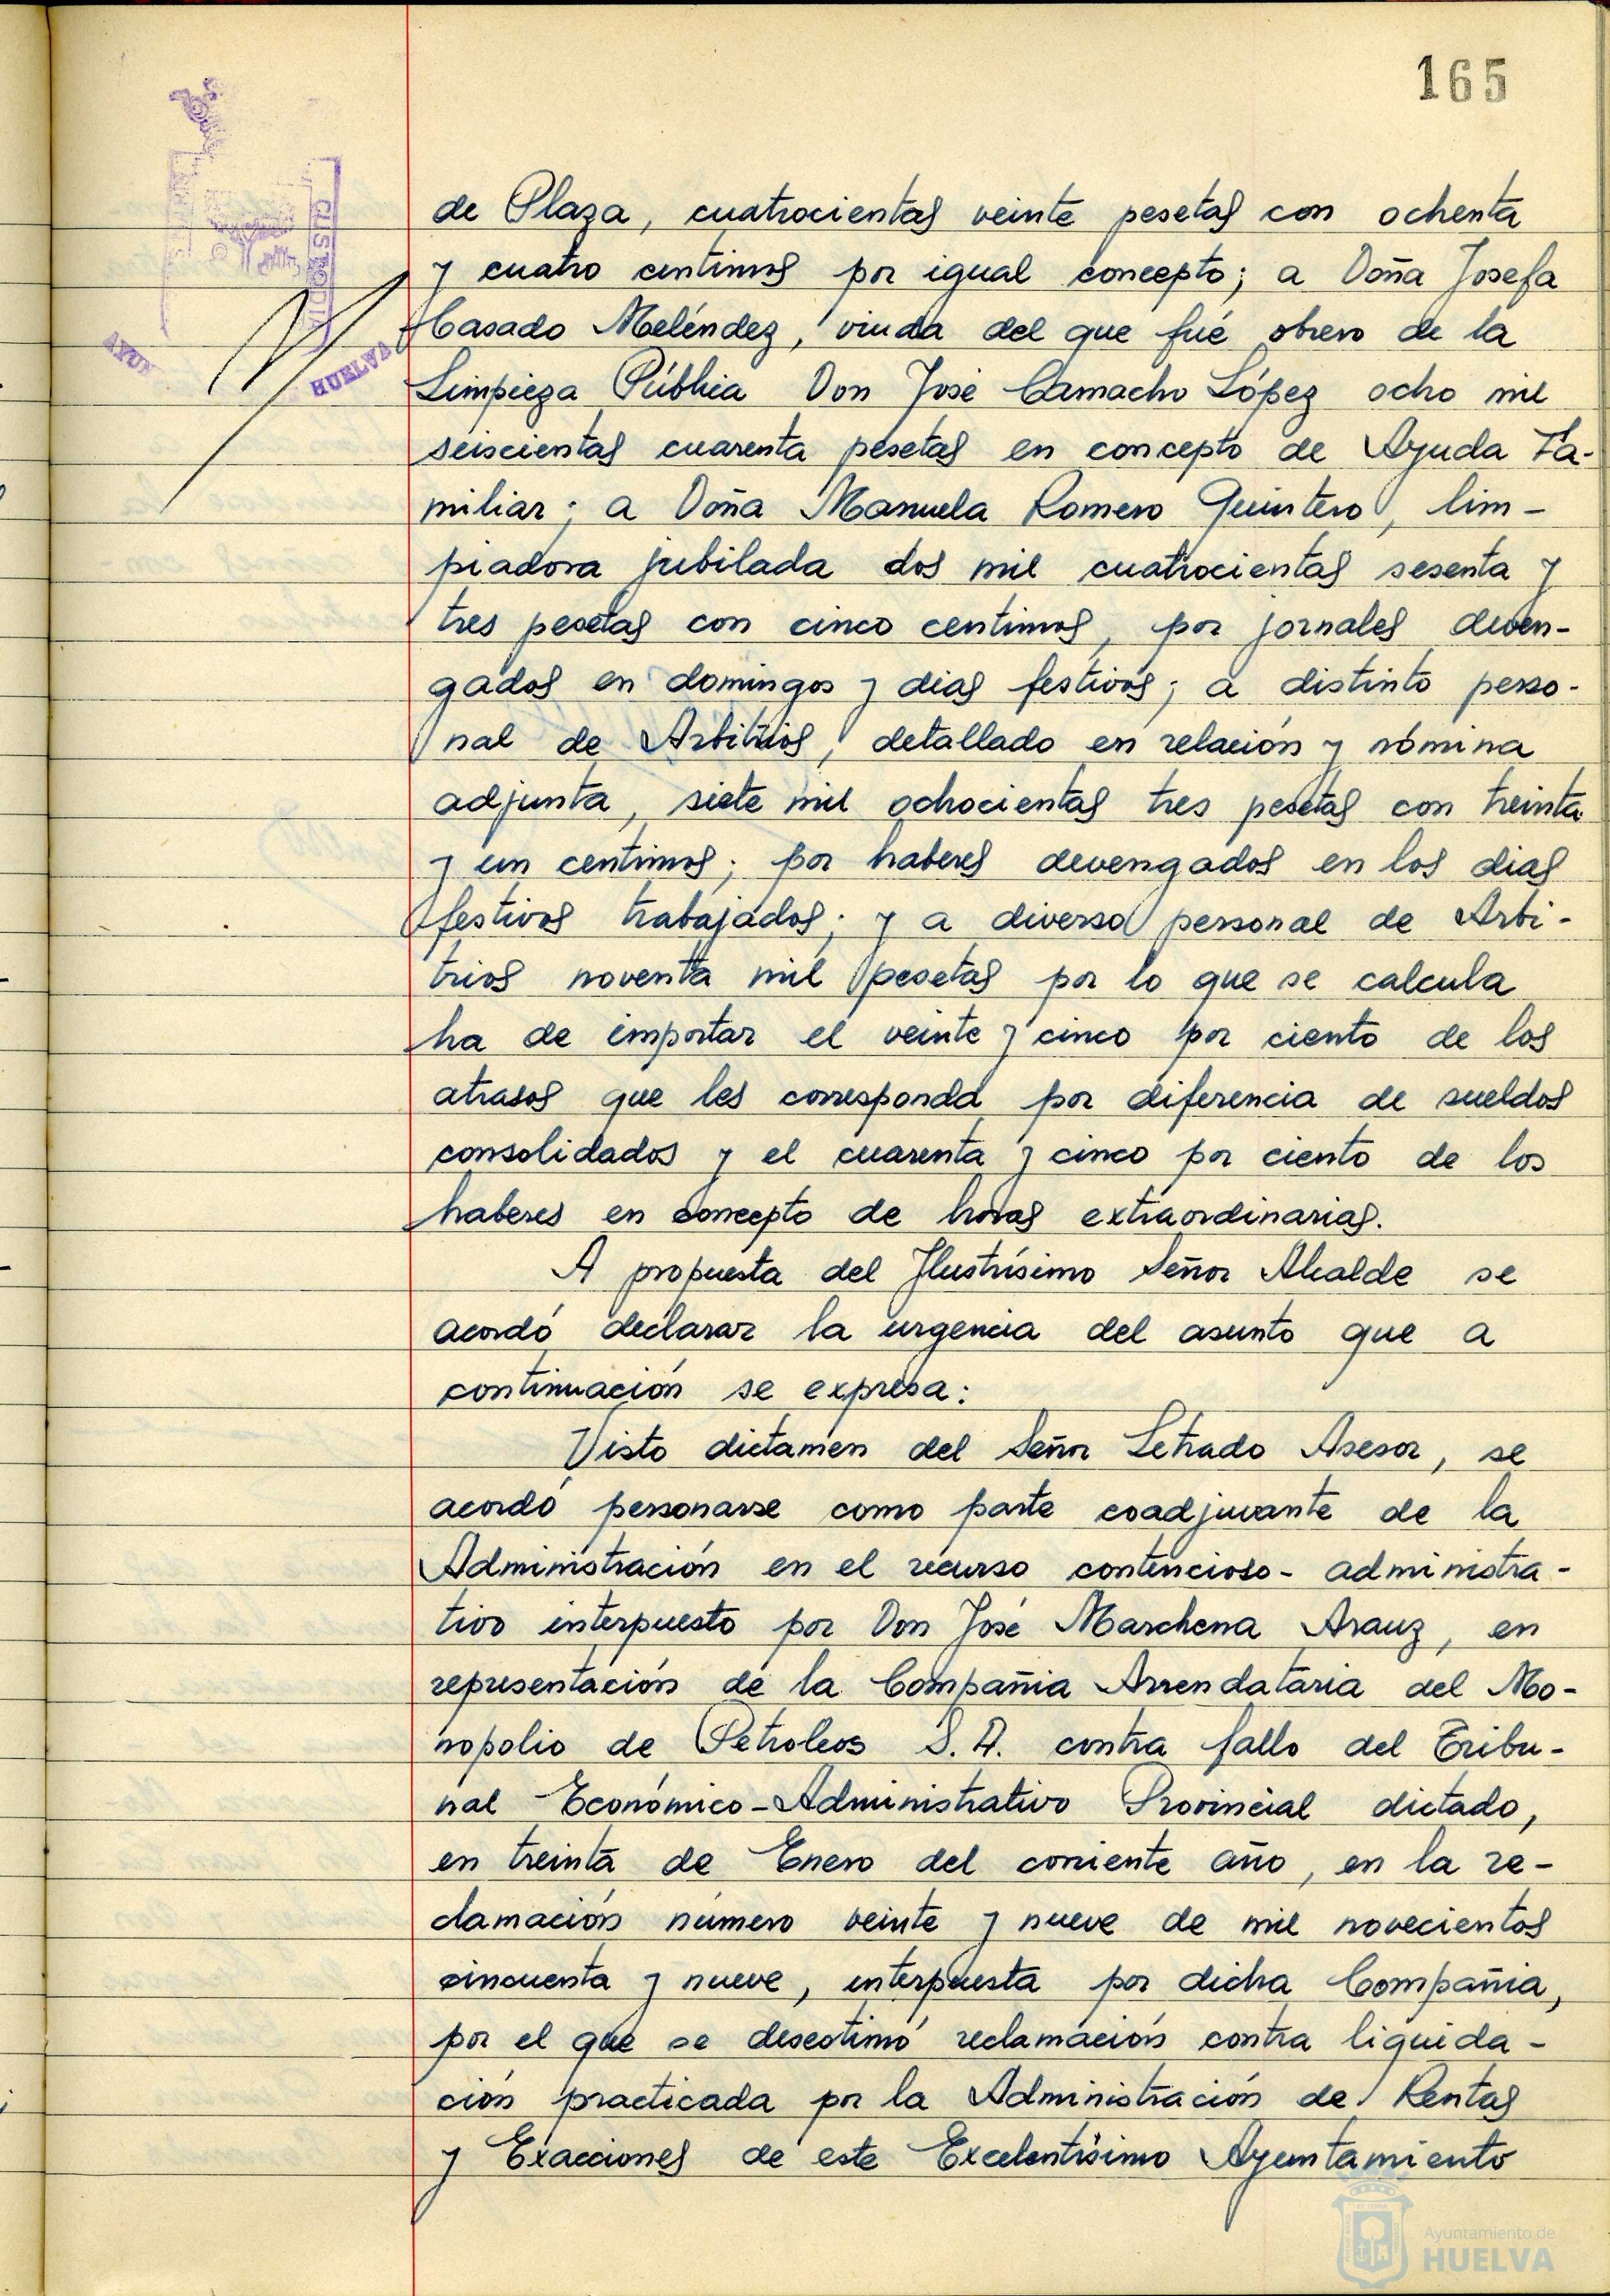 165
CUSTODIA
AYUN
HUELVA
de Plaza, cuatrocientas veinte pesetas con ochenta
y cuatro centimos por igual concepto; a Doña Josefa
Casado Meléndez, viuda del que fué obrero de la
Limpieza Pública Don José Camacho López ocho mil
seiscientas cuarenta pesetas en concepto de Ayuda Fa-
miliar; a Doña Manuela Romero Quintero, lim-
piadora jubilada dos mil cuatrocientas sesenta y
tres pesetas con cinco centimos, por jornales deven-
gados en domingos y dias festivos; a distinto perso-
nal de Arbitrios, detallado en relación y nómina
adjunta, siete mil ochocientas tres pesetas con treinta
y un centimos; por haberes devengados en los dias
festivos trabajados; y a diverso personal de Arbi-
trios noventa mil pesetas por lo que se calcula
ha de importar el veinte y cinco por ciento de los
atrasos que les corresponda por diferencia de sueldos
consolidados y el cuarenta y cinco por ciento de los
haberes en concepto de horas extraordinarias.
A propuesta del Ilustrísimo Señor Alcalde se
acordó declarar la urgencia del asunto que a
continuación se expresa:
Visto dictamen del Señor Letrado Asesor, se
acordó personarse como parte coadjuvante de la
Administración en el recurso contencioso-administra-
tivo interpuesto por Don José Marchena Arauz, en
representación de la Compañia Arrendataria del Mo-
nopolio de Petroleos S.A. contra fallo del Tribu-
nal Económico-Administrativo Provincial dictado,
en treinta de Enero del corriente año, en la re-
clamación número veinte y nueve de mil novecientos
cincuenta y nueve, interpuesta por dicha Compañia,
por el que se desestimó reclamación contra liquida-
ción practicada por la Administración de Rentas
y Exacciones de este Excelentísimo Ayuntamiento
Ayuntamiento de
HUELVA